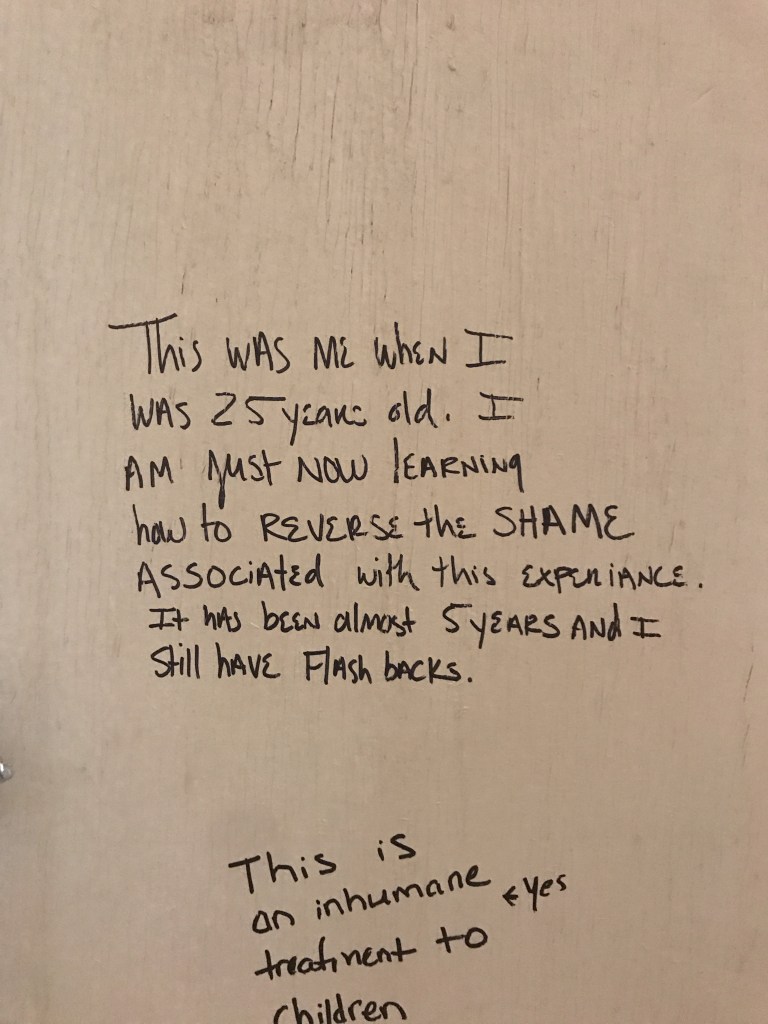 This WAS ME WhEN I
WAS 25 years old. I
AM just NOW lEARNING
how to REVERSE the SHAME
ASSOCiAtEd with this EXPERiANCE.
It hAS bEEN almost 5 yEARS ANd I
Still hAVE FlAsh bACKS.
This is
an inhumane ←yes
treatment to
children